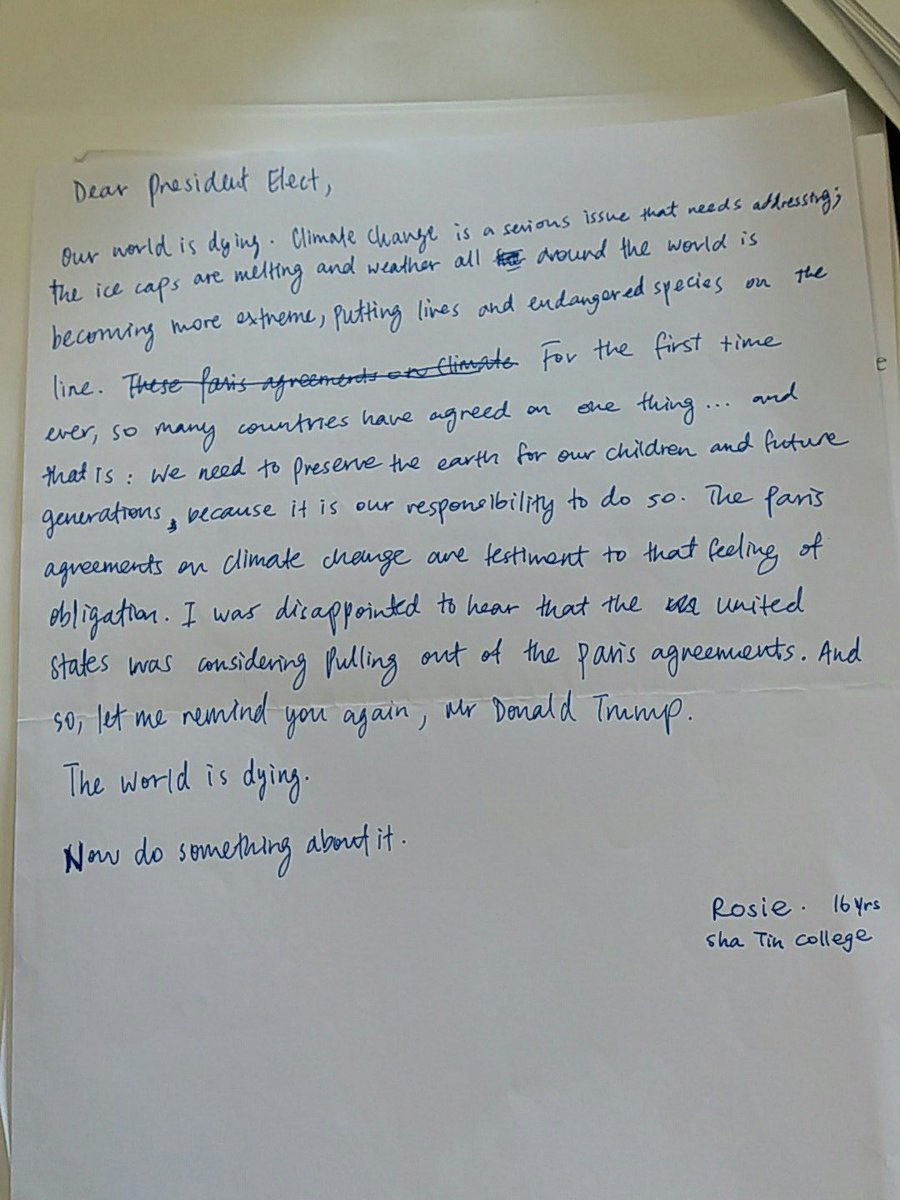 Dear President Elect,
Our world is dying. Climate Change is a serious issue that needs addressing;
the ice caps are melting and weather all around the world is
becoming more extreme, putting lives and endangered species on the
line. These Paris agreements on Climate For the first time
ever, so many countries have agreed on one thing... and
that is: We need to preserve the earth for our children and future
generations, because it is our responsibility to do so. The Paris
agreements on climate change are testiment to that feeling of
obligation. I was disappointed to hear that the United
States was considering pulling out of the Paris agreements. And
so, let me remind you again, Mr Donald Trump.
The world is dying.
Now do something about it.
Rosie. 16 yrs
Sha Tin College